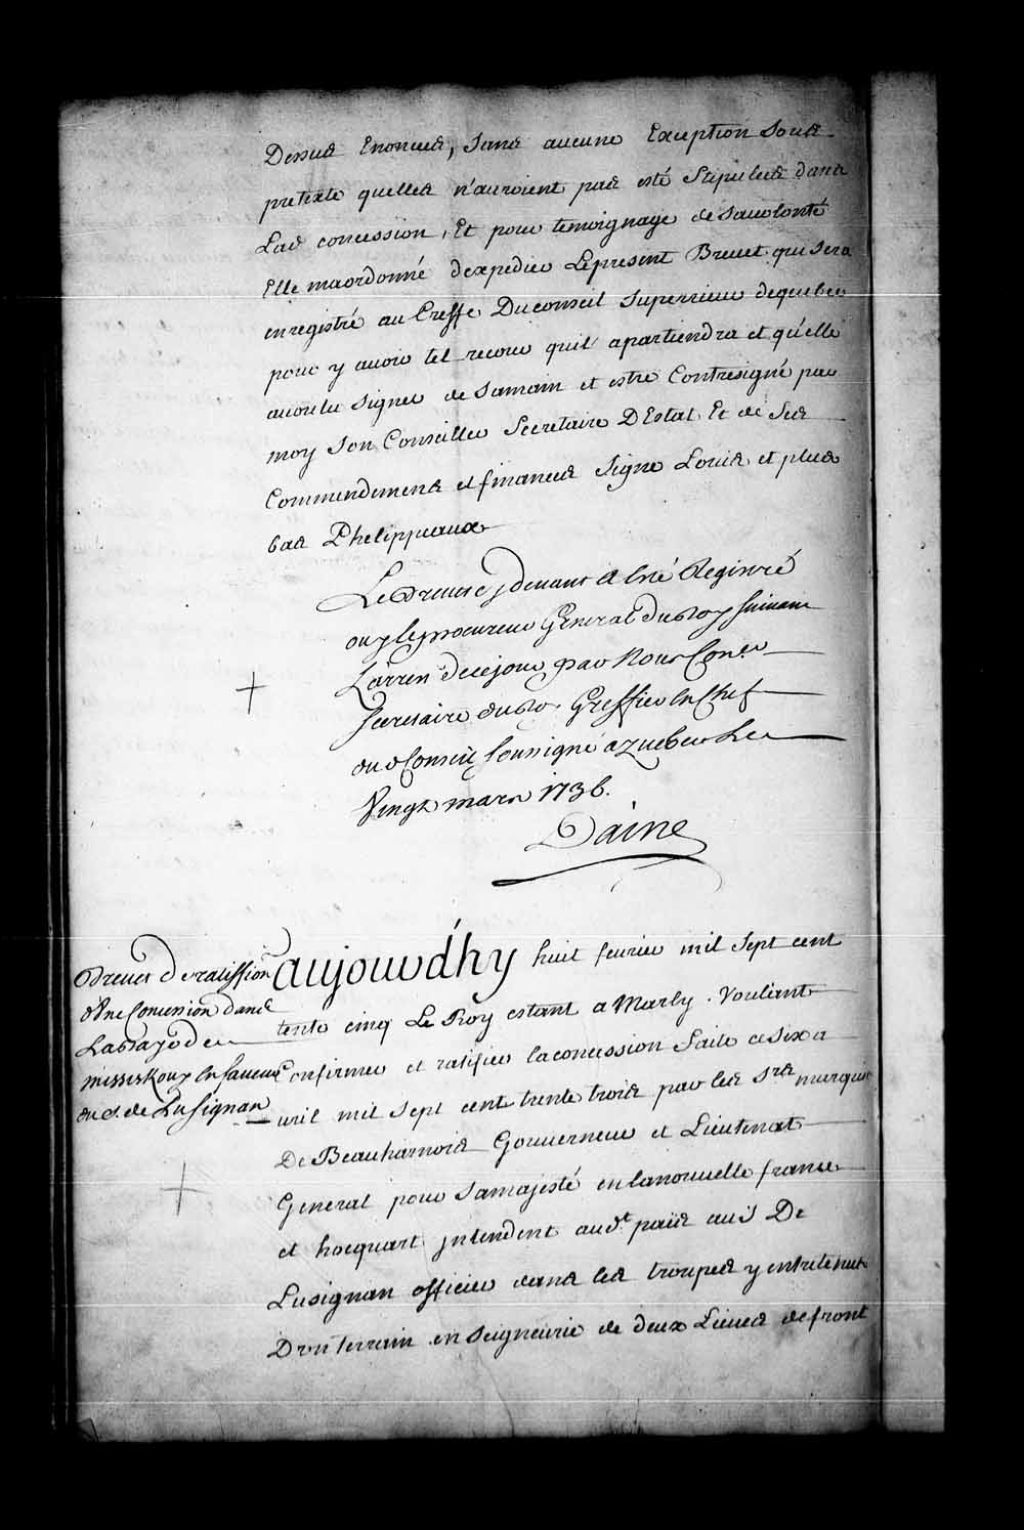 Dessus Enoncées, sans aucune Exception Sous
pretexte quelles n'auroient pas esté Stipulées dans
Lad concession, Et pour temoignage de savolonté
Elle maordonné dexpedier Lepresent Brevet qui sera
enregistré au Greffe Duconseil Superrieur dequebec
pour y avoir tel recour quil apartiendra et qu'elle
avoulu signer de Samain et estre Contresigné par
moy Son Conseiller Secretaire DEstat Et de Ses
Commendemens et finances Signé Louis et plus
bas Phelippeaux
Le Brevet cy devant a Eté Registré
ouy leprocureur General duRoy suivant
L'arrest decejour par Nous Con.er
Secretaire du Roy Greffier en Chef
dud Conseil soussigné a Quebec Le
Vingt mars 1736.
Daine
Brevet de ratiffion
d'Une Concession dans
La baye de
missiskouy En faveur
du s. de Lusignan
aujourd'hy huit fevrier mil sept cent
tente cinq Le Roy estant a Marly. Voulant
Confirmer et ratifier laconcession faite cesix a
uril mil sept cent trente trois par les Srs marquis
De Beauharnois Gouverneur et Lieutenat
General pour samajesté enlanouvelle france
et hocquart jntendent aud.t païs au S De
Lusignan officier dans les troupes y entretenues
D'un terrain en seigneurie de deux Lieues de front